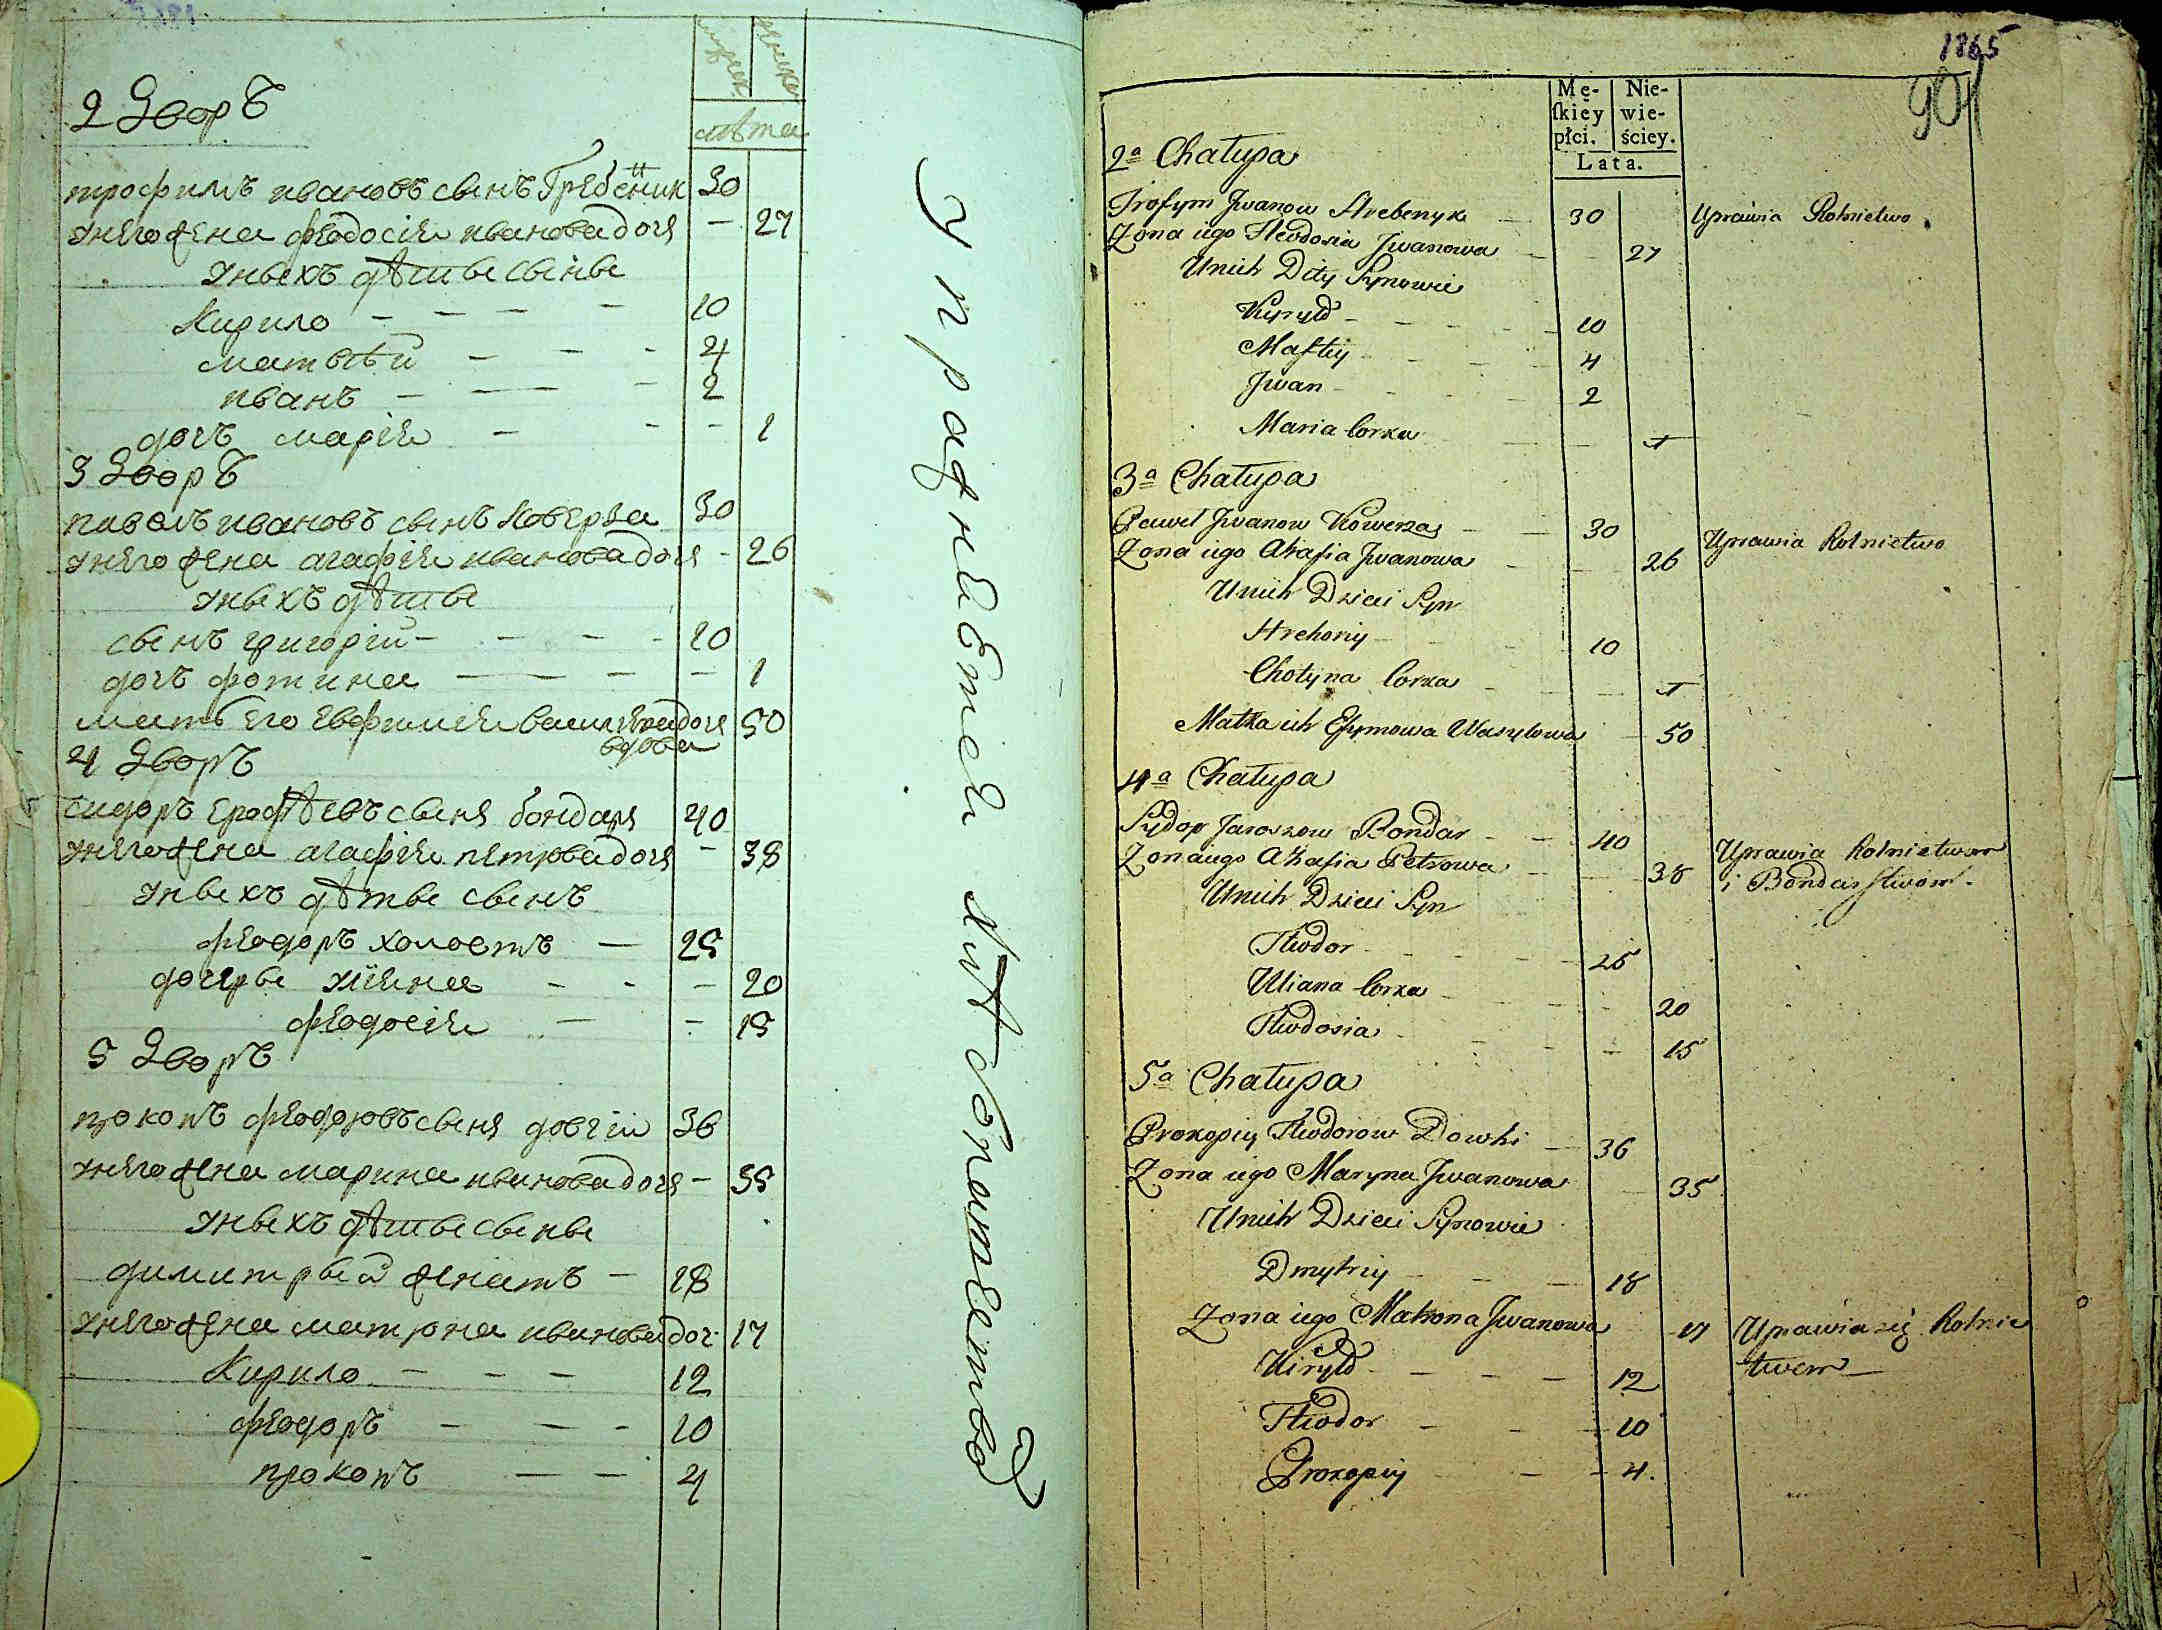 мужск женска
лѣта
2 Дворъ
трофимъ ивановъ сынъ Гребенник 30
унего жена феодосия иванова дочя – 27
унихъ дѣти сыны
Кирило – – – – 10
матвѣй – – – 4
иванъ – – – 2
дочъ мария – – – 1
3 Дворъ
павелъ ивановъ сынъ Коверза 30
унего жена агафия иванова дочя – 26
уныхъ дѣти
сынъ григорій – – – – 10
дочъ фотина – – – – – 1
мать его евфимия василева дочя 50
вдова
4 Дворъ
сидоръ ерофѣевъ сынъ бондаря 40
унего жена агафия петрова дочя – 38
уныхъ дѣти сынъ
феодоръ холостъ – 25
дочеры улияна – – – 20
феодосия – – 15
5 Дворъ
прокопъ феодоровъ сынъ довгій 36
унего жена марина иванова дочя – 35
уныхъ дѣти сыны
димитрый женатъ – 18
унего жена матрона иванова доч. 17
Кирило – – – 12
феодоръ – – – 10
прокопъ – – 4
Упражняется хлѣбопашеством
1865
901
Mę-
ſkiéy
płci. Nie-
wie-
ściey.
Lata.
2a Chałupa
Trofym Jwanow Hrebenyk – 30 Uprawia Rolnictwo
Zona iego Theodosia Jwanowa – – 27
Unich Dity Synowie
Kyryło – – – – – 10
Maftij – – – – 4
Jwan – – – – 2
Maria Corka – – 1
3a Chałupa
Paweł Jwanow Kowerza – – 30 Uprawia Rolnictwo
Zona iego Ahafia Jwanowa – – 26
Unich Dzieci Syn
Hrehoriy – – – 10
Chotyna Corka – – 1
Matka ich Efymowa Wasylowa – 50
4a Chałupa
Sydor Jaroszow Bondar – – 40 Uprawia Rolnictwem
Zona iego Ahafia Petrowa – – 38 i Bondarstwom –
Unich Dzieci Syn
Theodor – – – – 25
Uliana Corka – – – 20
Theodosia – – – – 15
5a Chałupa
Prokopiy Theodorow Dowhi – 36
Zona iego Maryna Jwanowa – 35
Unich Dzieci Synowie
Dmytriy – – – 18
Zona iego Matrona Jwanowa – 17 Uprawia się Rolnic
Kiryło – – – – 12 twem –
Theodor – – – 10
Prokopiy – – – 4.